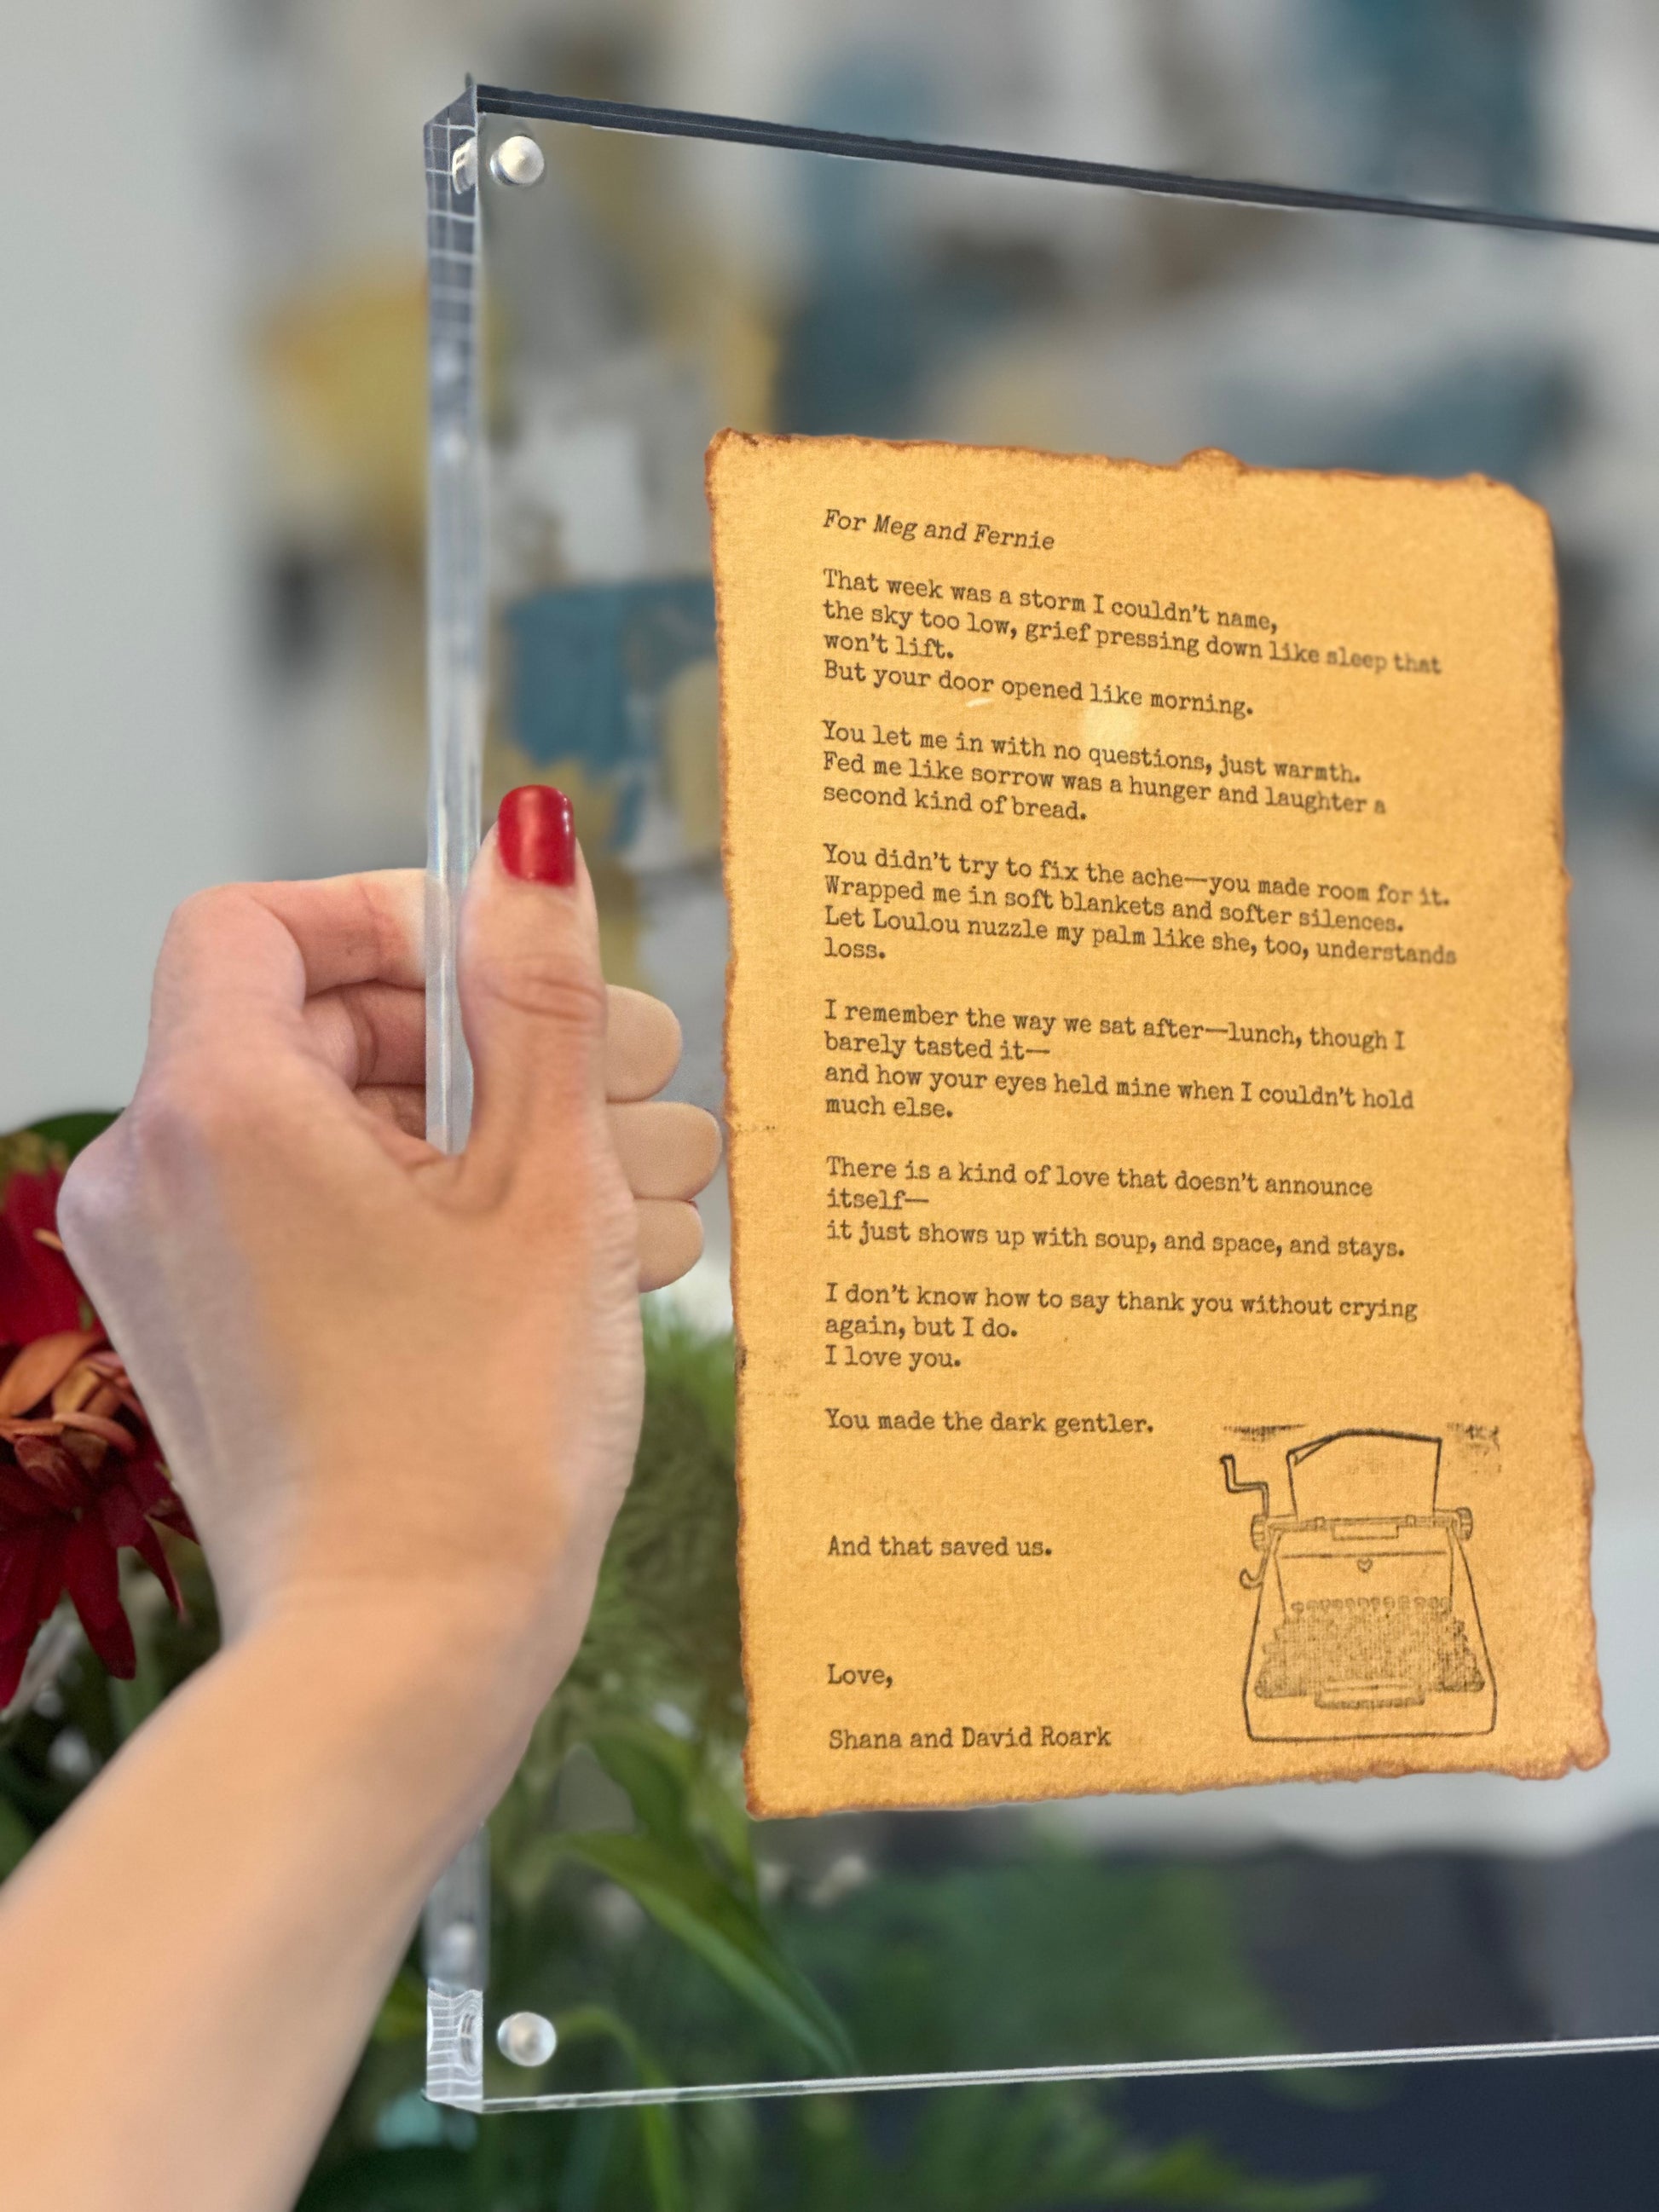 For Meg and Fernie
That week was a storm I couldn't name,
the sky too low, grief pressing down like sleep that
won't lift.
But your door opened like morning.
You let me in with no questions, just warmth.
Fed me like sorrow was a hunger and laughter a
second kind of bread.
You didn't try to fix the ache—you made room for it.
Wrapped me in soft blankets and softer silences.
Let Loulou nuzzle my palm like she, too, understands
loss.
I remember the way we sat after—lunch, though I
barely tasted it—
and how your eyes held mine when I couldn't hold
much else.
There is a kind of love that doesn't announce
itself—
it just shows up with soup, and space, and stays.
I don't know how to say thank you without crying
again, but I do.
I love you.
You made the dark gentler.
And that saved us.
Love,
Shana and David Roark